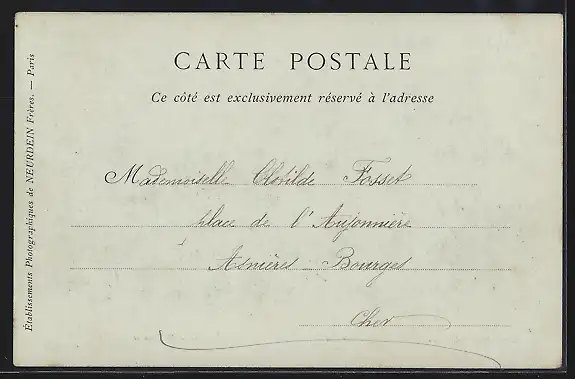 CARTE POSTALE
Ce côté est exclusivement réservé à l'adresse
Mademoiselle Clotilde Fosset
place de l'Aujonnière
Asnières Bourges
Cher
Établissements Photographiques de NEURDEIN Frères. — Paris